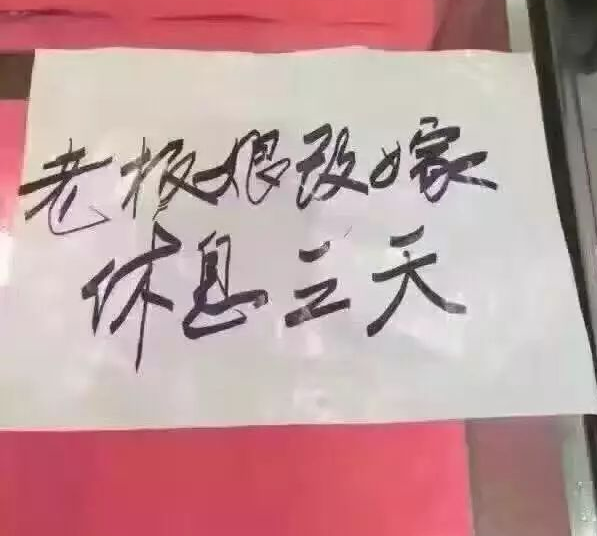 老板娘改嫁
休息三天